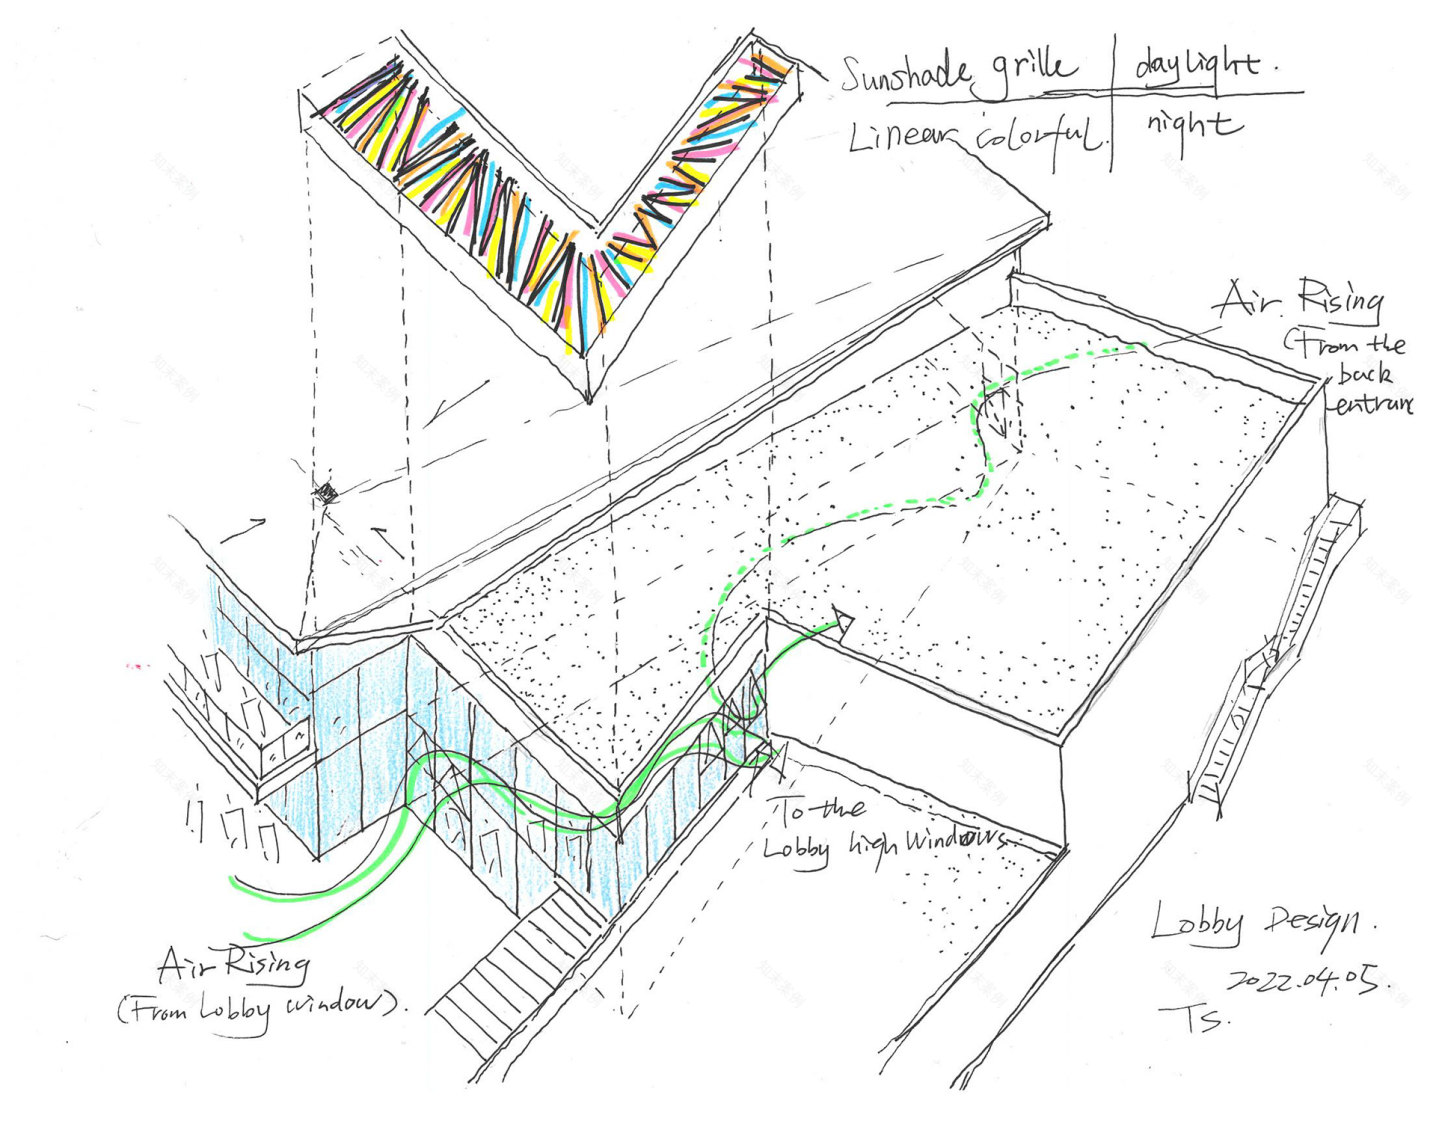 Sunshade grille | daylight.
Linear colorful. | night
Air Rising
(From the
back
entranc
To the
Lobby high Windows.
Air Rising
(From Lobby window).
Lobby Design.
2022.04.05.
TS.
知末案例